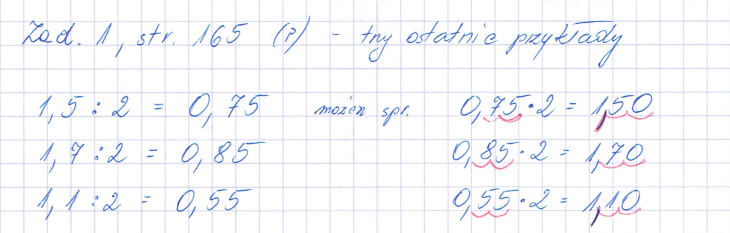 Zad. 1, str. 165 (P) - trzy ostatnie przykłady
1,5 : 2 = 0,75 możen spr. 0,75 · 2 = 1,50
1,7 : 2 = 0,85 0,85 · 2 = 1,70
1,1 : 2 = 0,55 0,55 · 2 = 1,10